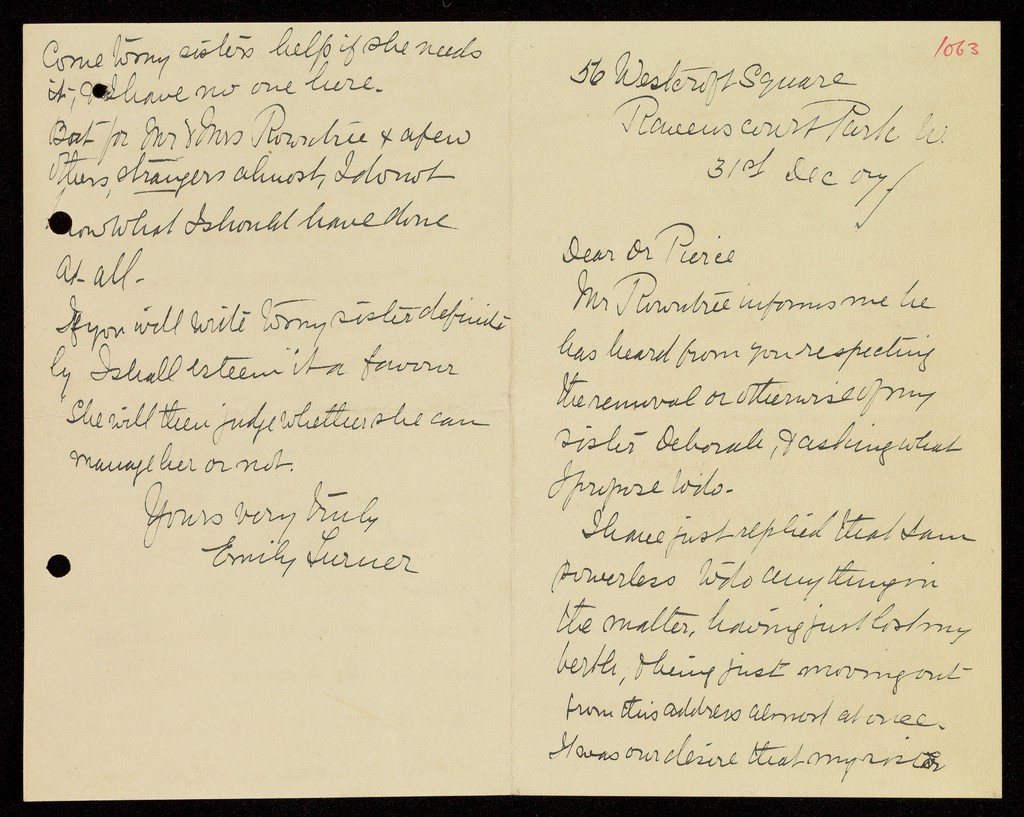 1063
56 Westcroft Square
Ravenscourt Park W.
31st Dec 07/
Dear Dr Pierce
Mr Rowntree informs me he
has heard from you respecting
the removal or otherwise of my
sister Deborah, & asking what
I propose to do.
I have just replied that I am
powerless to do anything in
the matter, having just lost my
berth, & being just moving out
from this address almost at once.
It was our desire that my sister
Come to my sisters help if she needs
it, & I have no one here.
But for Mr & Mrs Rowntree & a few
others, strangers almost, I do not
know what I should have done
at all -
If you will write to my sister definite
ly I shall esteem it a favour
She will then judge whether she can
manage her or not.
Yours very truly
Emily Turner